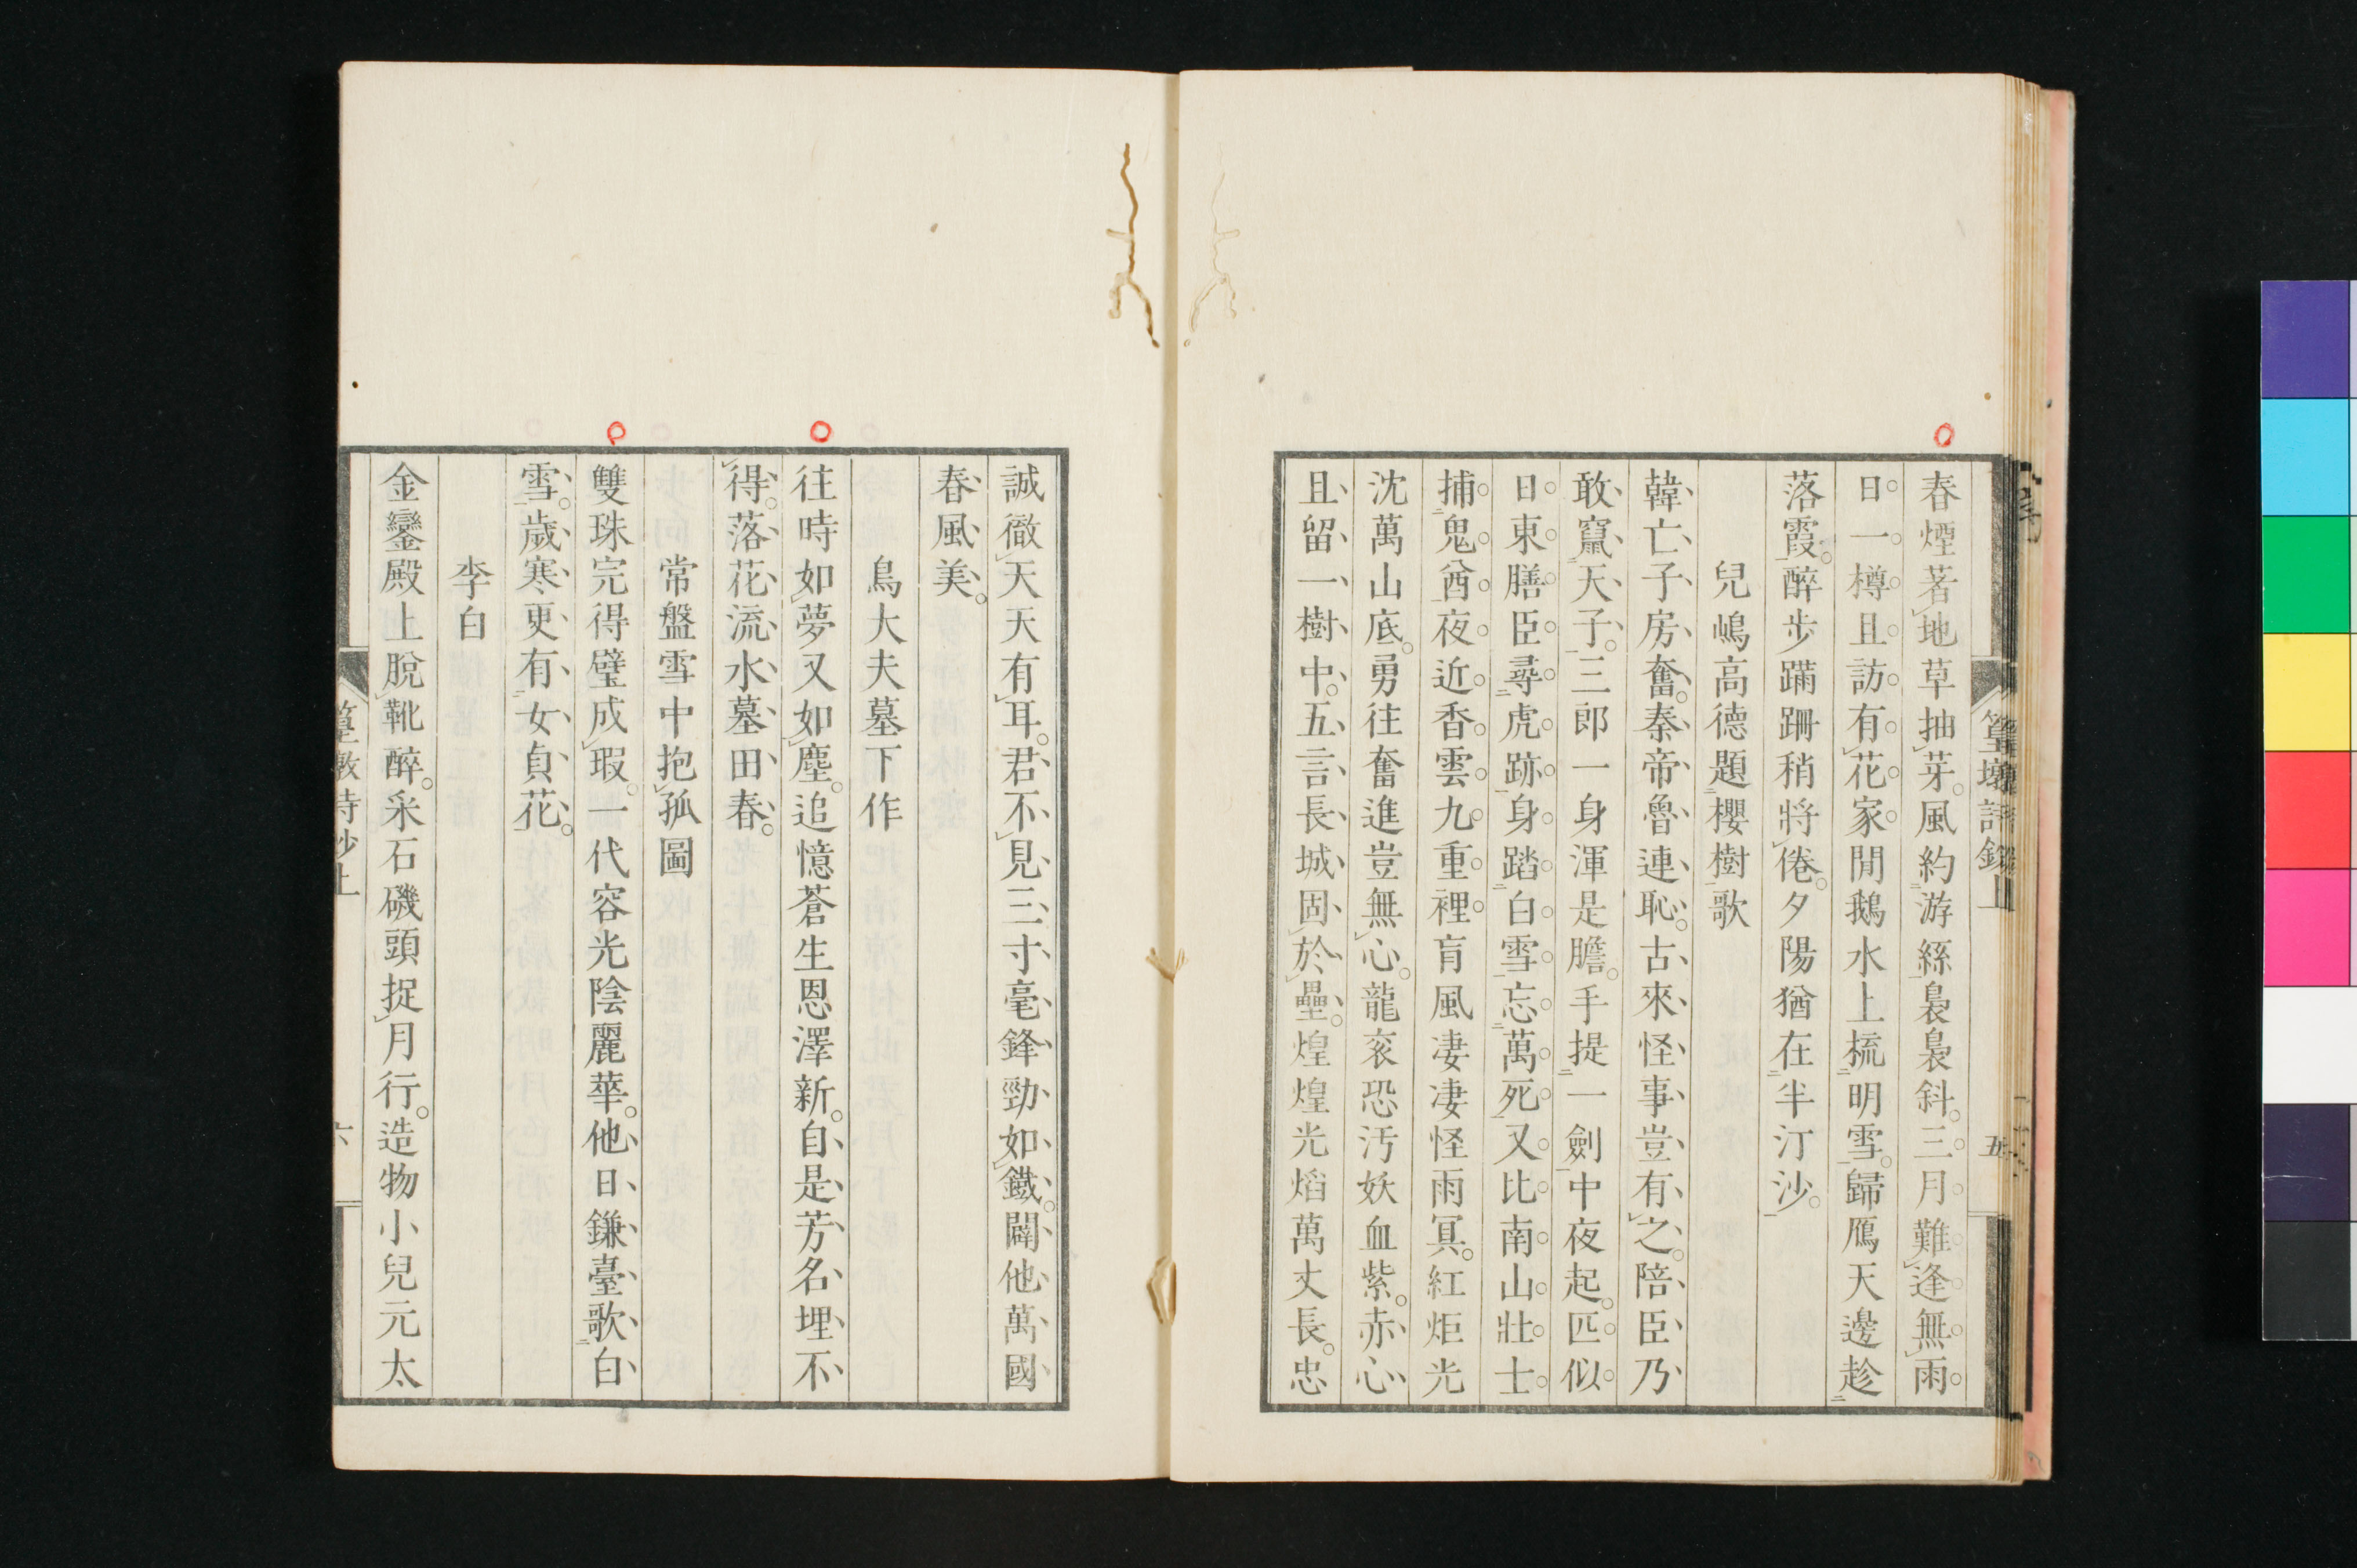 春煙著地草抽芽。風約游絲裊裊斜。三月難逢無雨
日一樽且訪有花家閒鵝水上梳明雪。歸鴈天邊趁
落霞。醉步蹣跚稍將倦。夕陽猶在半汀沙。
兒嶋高德題櫻樹歌
韓亡子房奮。秦帝魯連恥。古來怪事豈有之。陪臣乃
敢竄天子。三郎一身渾是膽。手提一劍中夜起。匹似
日東膳臣尋虎跡身踏白雪忘萬死又比南山壯士
捕鬼酋夜近香雲九重裡肓風凄凄怪雨冥。紅炬光
沈萬山底。勇往奮進豈無心。龍衮恐汚妖血紫。赤心
且留一樹中。五言長城固於壘。煌煌光焰萬丈長。忠
五
誠徹天天有耳。君不見三寸毫鋒勁如鐵。闢他萬國
春風美。
鳥大夫墓下作
往時如夢又如塵。追憶蒼生恩澤新。自是芳名埋不
得。落花流水墓田春。
常盤雪中抱孤圖
雙珠完得璧成瑕。一代容光陰麗華。他日鎌臺歌白
雪。歲寒更有女貞花。
李白
金鑾殿上脫靴醉。采石磯頭捉月行。造物小兒元太
六